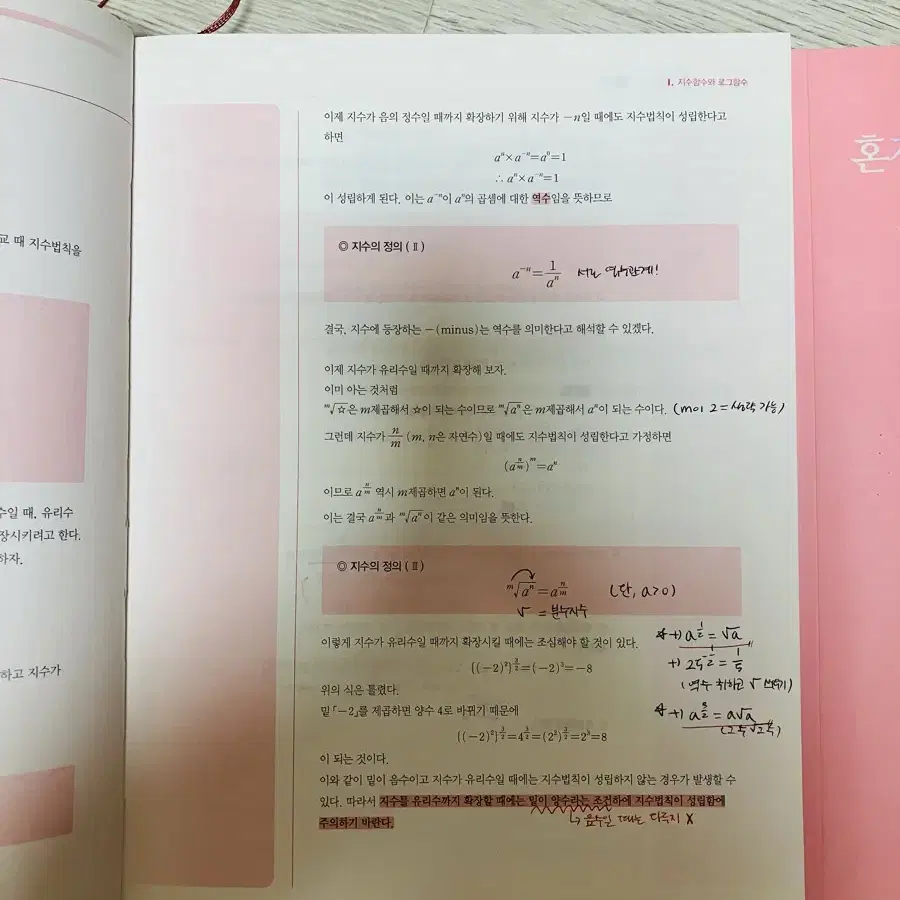 I. 지수함수와 로그함수
혼
교 때 지수법칙을
수일 때. 유리수
장시키려고 한다.
하자.
하고 지수가
이제 지수가 음의 정수일 때까지 확장하기 위해 지수가 −n일 때에도 지수법칙이 성립한다고
하면
aⁿ×a⁻ⁿ=a⁰=1
∴ aⁿ×a⁻ⁿ=1
이 성립하게 된다. 이는 a⁻ⁿ이 aⁿ의 곱셈에 대한 역수임을 뜻하므로
◎ 지수의 정의 ( Ⅱ )
a⁻ⁿ=1/aⁿ 서로 역수관계!
결국, 지수에 등장하는 −(minus)는 역수를 의미한다고 해석할 수 있겠다.
이제 지수가 유리수일 때까지 확장해 보자.
이미 아는 것처럼
ᵐ√☆은 m제곱해서 ☆이 되는 수이므로 ᵐ√aⁿ은 m제곱해서 aⁿ이 되는 수이다. (m이 2 = 생략 가능)
그런데 지수가 n/m (m, n은 자연수)일 때에도 지수법칙이 성립한다고 가정하면
(a^(n/m))^m=aⁿ
이므로 a^(n/m) 역시 m제곱하면 aⁿ이 된다.
이는 결국 a^(n/m)과 ᵐ√aⁿ이 같은 의미임을 뜻한다.
◎ 지수의 정의 ( Ⅱ )
ᵐ√aⁿ=a^(n/m) (단, a>0)
√ = 분수지수
이렇게 지수가 유리수일 때까지 확장시킬 때에는 조심해야 할 것이 있다.
{(−2)²}^(3/2)=(−2)³=−8
위의 식은 틀렸다.
밑「−2」를 제곱하면 양수 4로 바뀌기 때문에
{(−2)²}^(3/2)=4^(3/2)=(2²)^(3/2)=2³=8
이 되는 것이다.
이와 같이 밑이 음수이고 지수가 유리수일 때에는 지수법칙이 성립하지 않는 경우가 발생할 수
있다. 따라서 지수를 유리수까지 확장할 때에는 밑이 양수라는 조건하에 지수법칙이 성립함에
주의하기 바란다.
↳ 음수일 때는 다루지 X
a^(1/2) = √a
25^(-1/2) = 1/5
(역수 취하고 √ 씌우기)
a^(3/2) = a√a